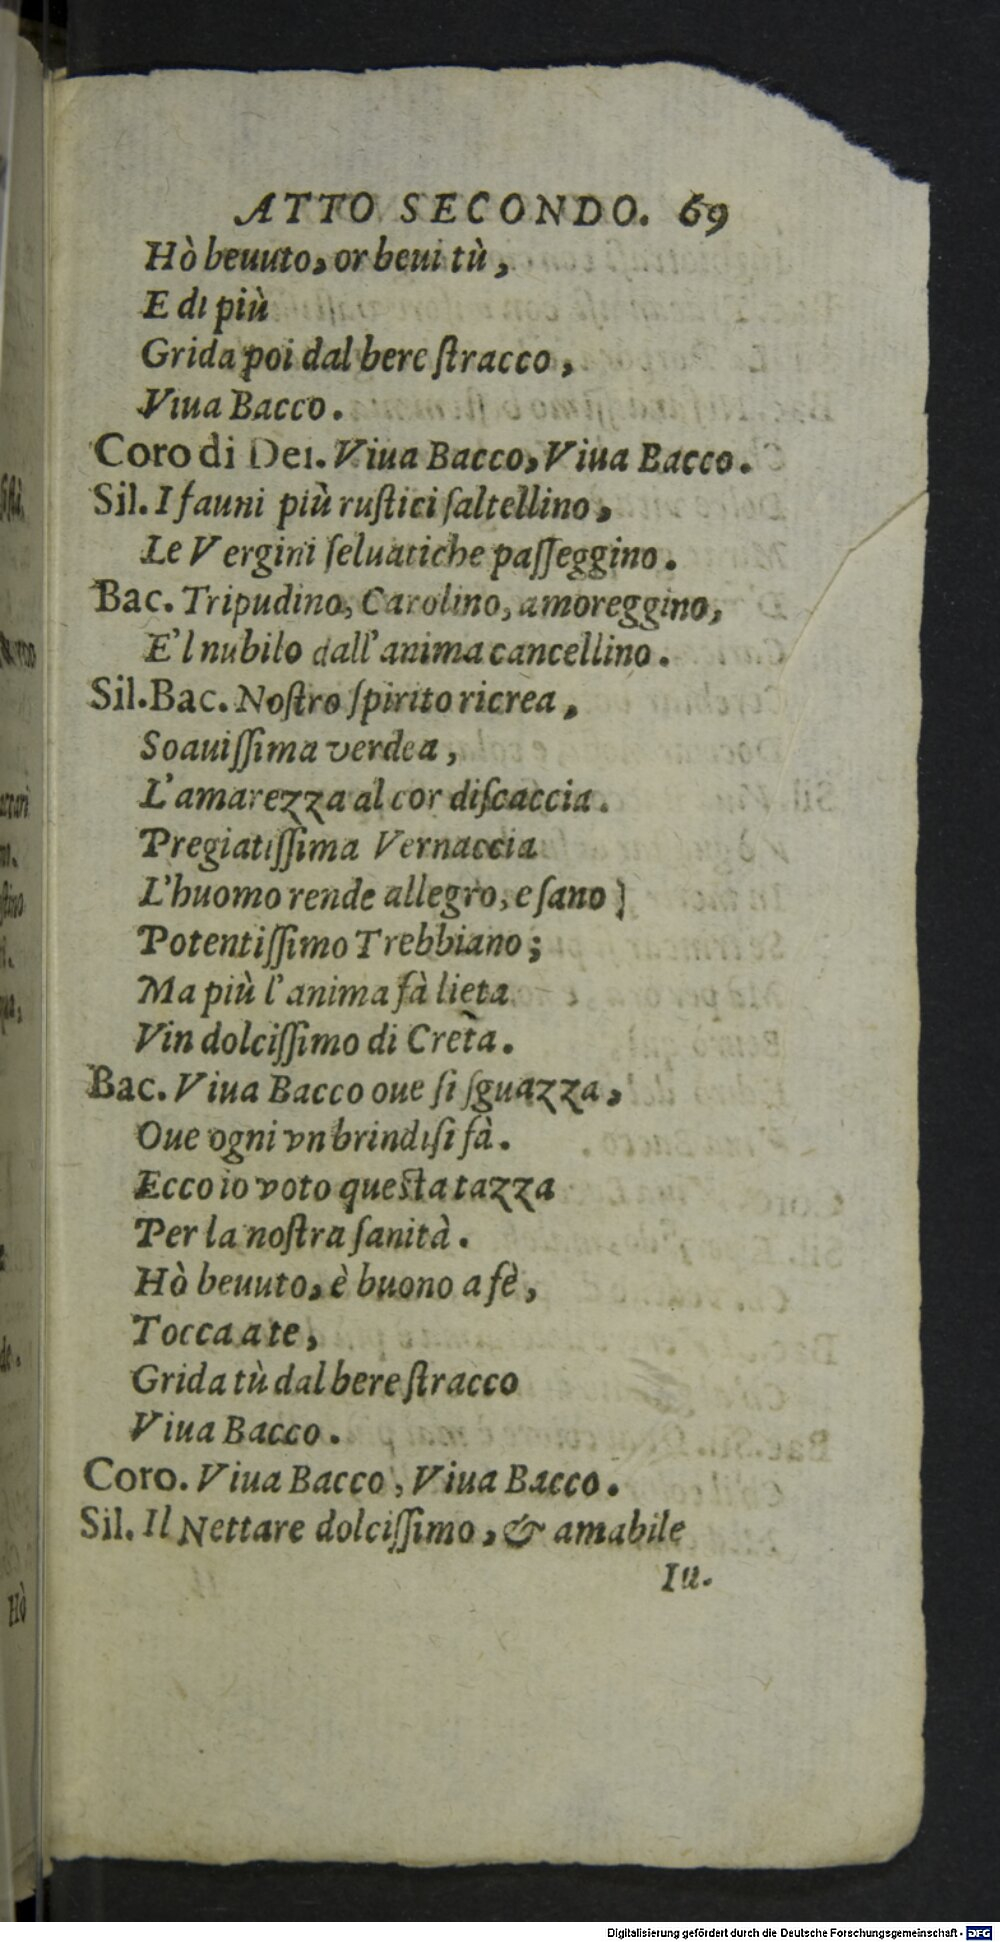 ATTO SECONDO. 69
Hò beuuto, or beui tù,
E di più
Grida poi dal bere ſtracco,
Viua Bacco.
Coro di Dei. Viua Bacco, Viua Bacco.
Sil. I fauni più ruſtici ſaltellino,
Le Vergini ſeluatiche paſſeggino.
Bac. Tripudino, Carolino, amoreggino,
E'l nubilo dall'anima cancellino.
Sil. Bac. Noſtro ſpirito ricrea,
Soauiſſima verdea,
L'amarezza al cor diſcaccia.
Pregiatiſſima Vernaccia
L'huomo rende allegro, e ſano;
Potentiſſimo Trebbiano;
Ma più l'anima fà lieta
Vin dolciſſimo di Creta.
Bac. Viua Bacco oue ſi ſguazza,
Oue ogni vn brindiſi fà.
Ecco io voto queſta tazza
Per la noſtra ſanità.
Hò beuuto, è buono a fè,
Tocca a te,
Grida tù dal bere ſtracco
Viua Bacco.
Coro. Viua Bacco, Viua Bacco.
Sil. Il Nettare dolciſſimo, & amabile
Iu.
Digitalisierung gefördert durch die Deutsche Forschungsgemeinschaft - DFG